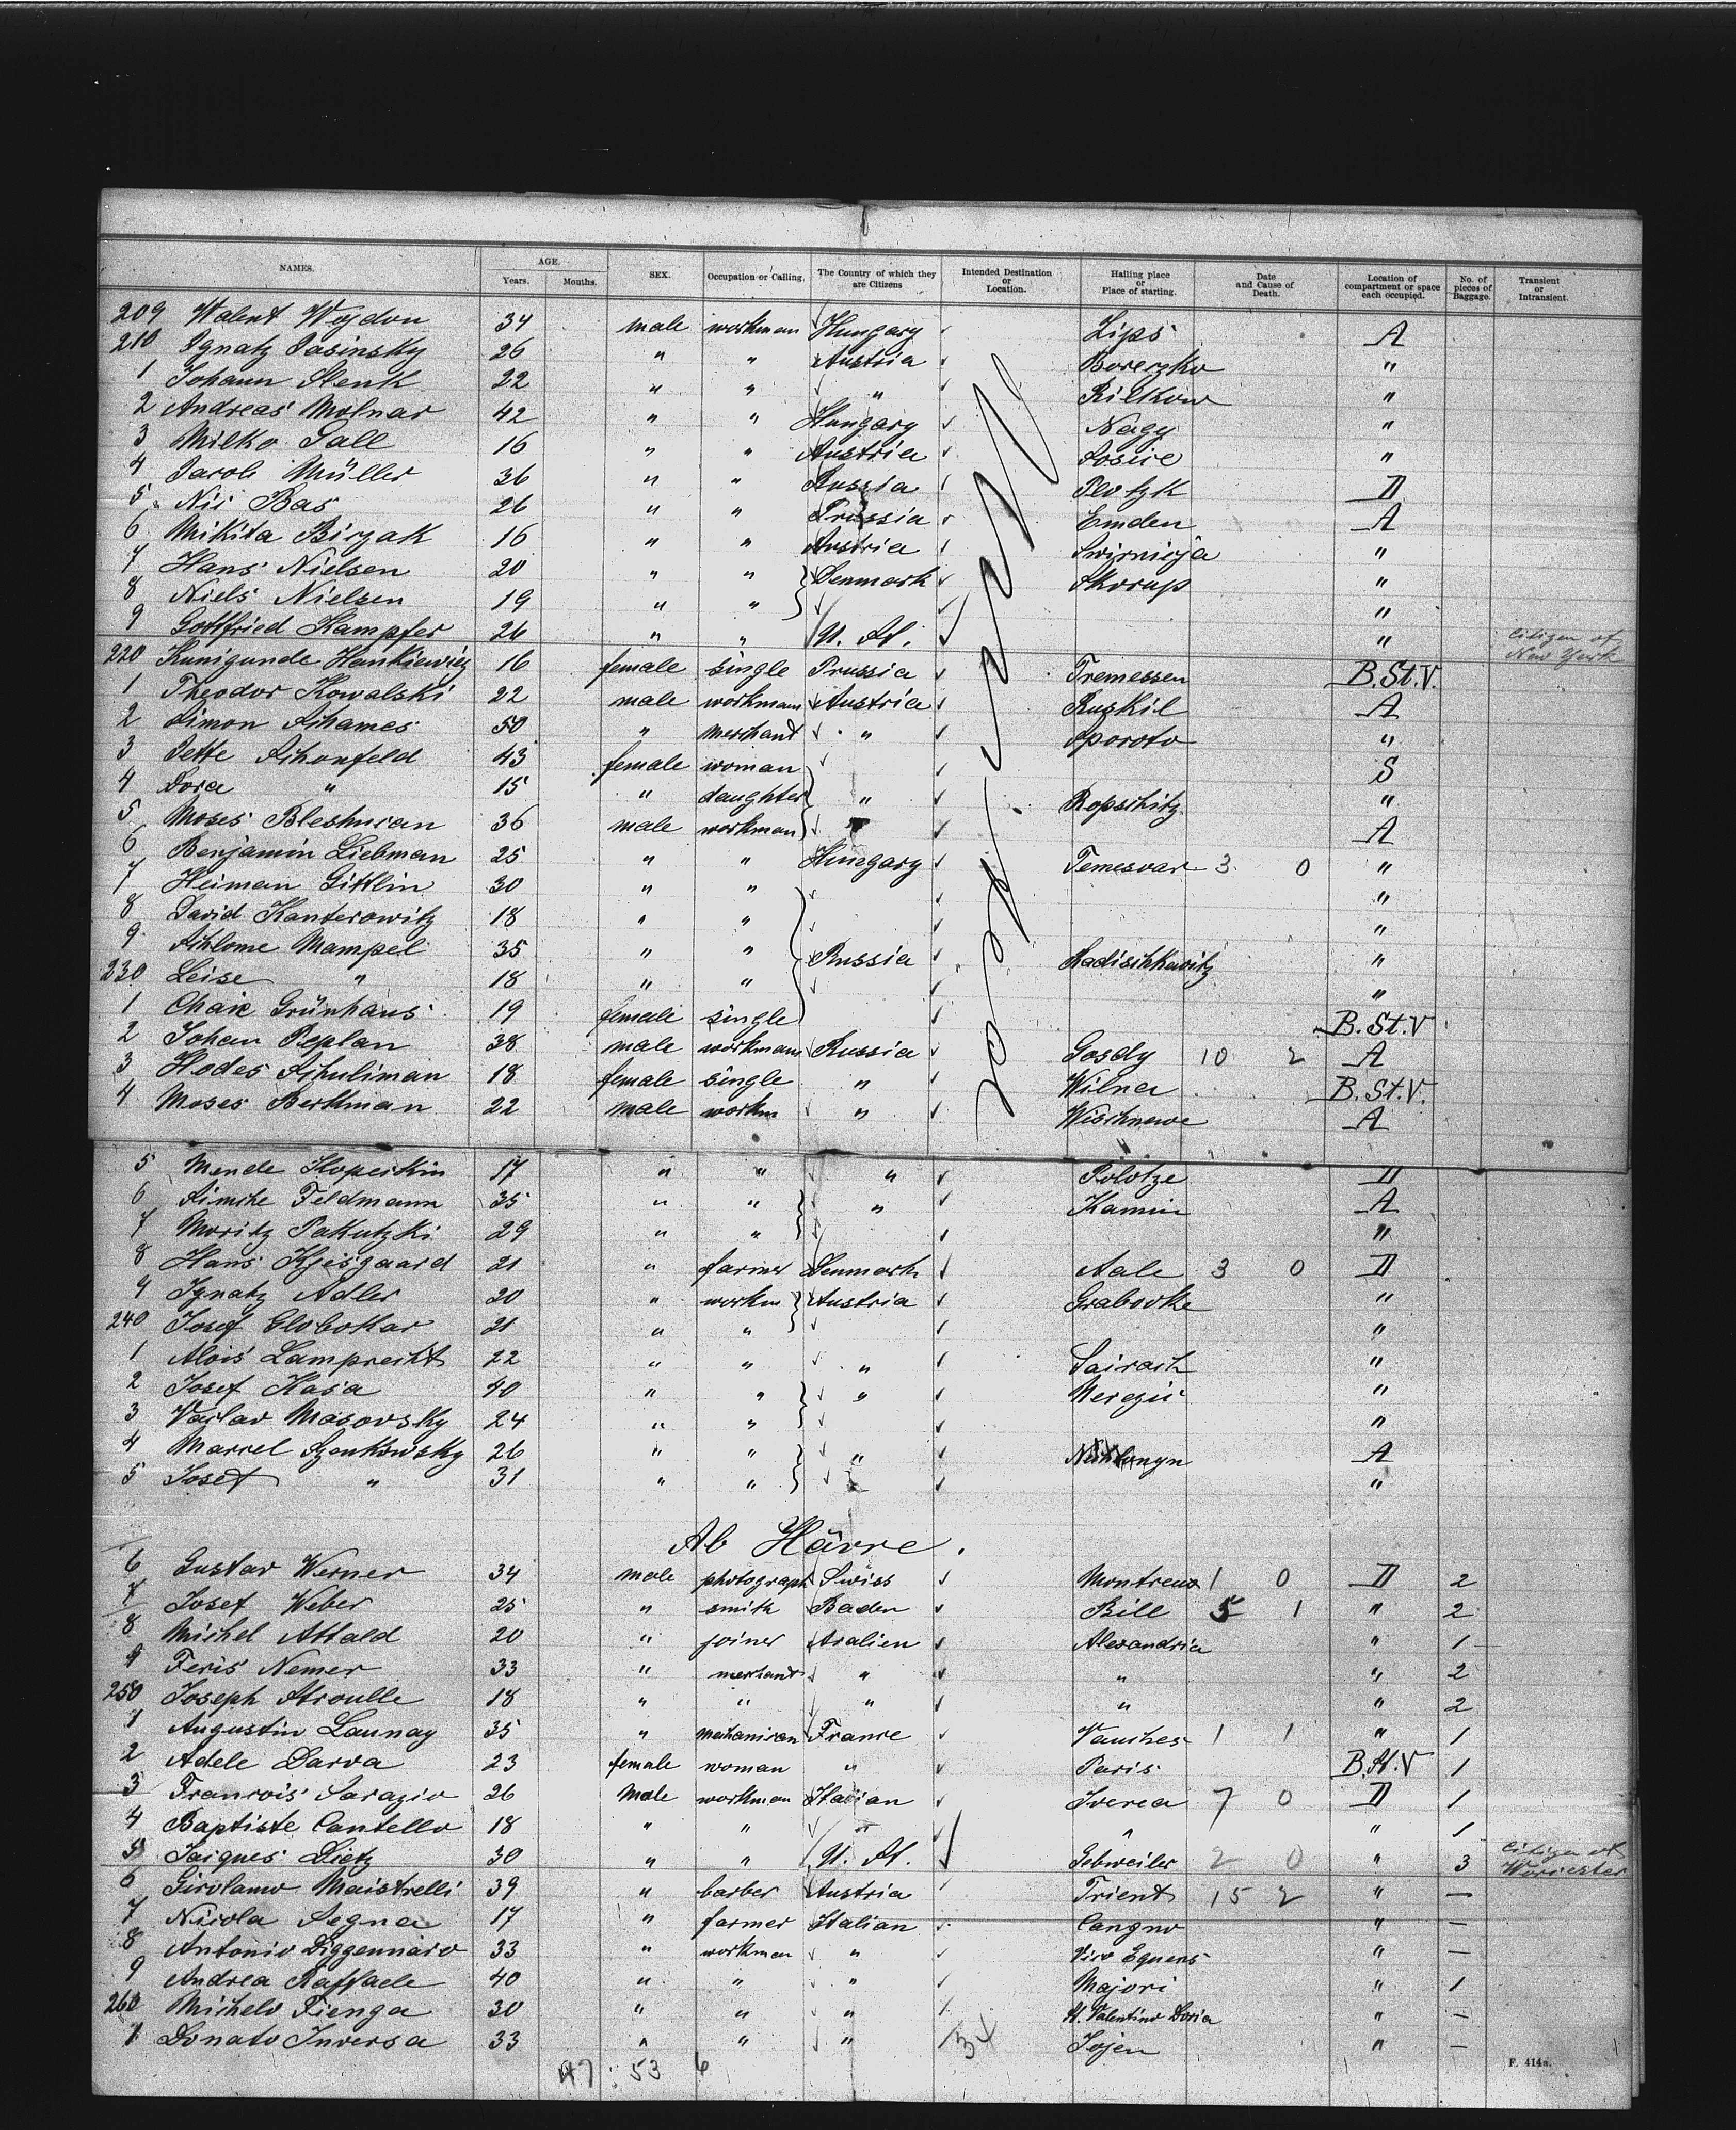 NAMES. AGE. Years. Months. SEX. Occupation or Calling. The Country of which they are Citizens Intended Destination or Location. Halling place or Place of starting. Date and Cause of Death. Location of compartment or space each occupied. No. of pieces of Baggage. Transient or Intransient.
209 Walent Wojdon 34 male workman Hungary Zips A
210 Ignatz Jasinsky 26 " " Austria Boreczko "
1 Johann Slenk 22 " " " Rilkow "
2 Andreas Molnar 42 " " Hungary Nagy "
3 Milko Pall 16 " " Austria "
4 Jacob Müller 36 " " Russia Plotzk D
5 Nis Bas 26 " " Prussia Emden A
6 Mikita Birzak 16 " " Austria "
7 Hans Nielsen 20 " " Denmark Skorup "
8 Niels Nielsen 19 " " "
9 Gottfried Kampfer 26 " " U. St. " citizen of New York
220 Kunigunde Hankiewicz 16 female single Prussia Tremessen B. St. V.
1 Theodor Kowalski 22 male workman Austria Ruskil A
2 Simon Schames 50 " merchant " Oporoto "
3 Jette Schonfeld 43 female woman S
4 Dora " 15 " daughter " Ropschitz "
5 Moses Bleshman 36 male workman " A
6 Benjamin Liebman 25 " " Hungary Temesvar 3 0 "
7 Heiman Gittlin 30 " " "
8 David Kanterowitz 18 " " "
9 Schlome Mampel 35 " " Russia Radischkowitz "
230 Leise " 18 " " "
1 Chaie Grünhaus 19 female single B. St. V
2 Johan Replan 38 male workman Russia Gosdy 10 2 A
3 Hodes Schuliman 18 female single " Wilna B. St. V.
4 Moses Berkman 22 male workm " Wischnewe A
5 Mende Kopeikin 17 " " " Polotze D
6 Simche Feldmann 35 " " " Kamin A
7 Moritz Pakutzki 29 " " "
8 Hans Kjesgaard 21 " farmer Denmark Aale 3 0 D
9 Ignatz Adler 20 " workm Austria Grabovke "
240 Josef Globokar 21 " " "
1 Alois Lamprecht 22 " " " Sairach "
2 Josef Kasa 40 " " " Merezic "
3 Vaclav Masovsky 24 " " "
4 Marcel Szenkowsky 26 " " " A
5 Josef " 31 " " "
Ab Hâvre.
6 Gustav Werner 34 male photograph Swiss Montreux 1 0 D 2
7 Josef Weber 25 " smith Baden Bill 5 1 " 2
8 Michel Attald 20 " joiner Aralien Alexandria " 1
9 Feris Nemer 33 " merchant " " " 2
250 Joseph Stroulle 18 " " " " " 2
1 Augustin Launay 35 " mechanican France Vauches 1 1 " 1
2 Adele Darva 23 female woman " Paris B. St. V 1
3 Francois Sarazio 26 male workman Italian Iverea 7 0 D 1
4 Baptiste Cantello 18 " " " " " 1
5 Jacques Dietz 30 " " U. St. Gebweiler 2 0 " 3 citizen of Worcester
6 Girolamo Maistrelli 39 " barber Austria Trient 15 2 " —
7 Nicola Segna 17 " farmer Italian Cangno " —
8 Antonio Diggennaro 33 " workman " Vico Equens " —
9 Andrea Raffaele 40 " " " Majori " 1
260 Michelo Fienga 30 " " " St. Valentino Doria " —
1 Donato Inversa 33 " " " Jojen " —
47 53 6 34
F. 414a.